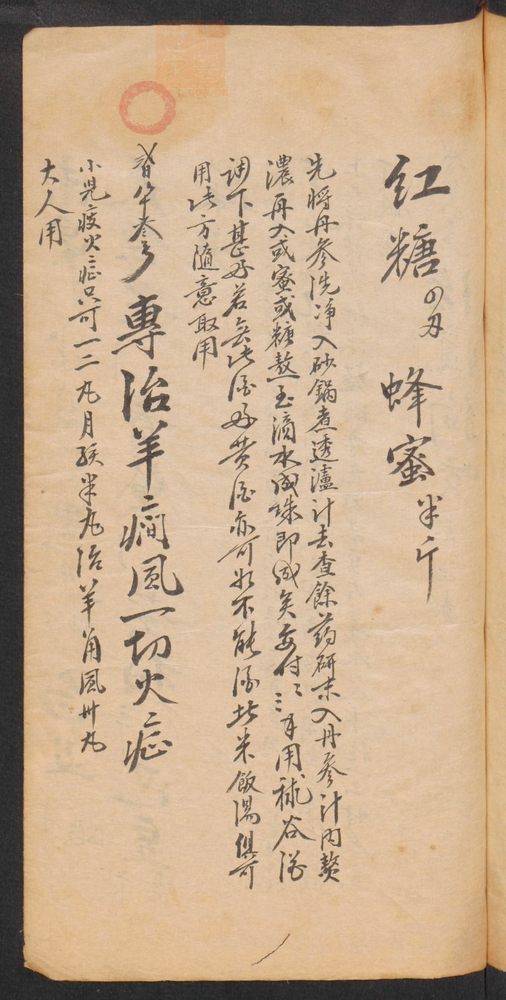 红糖四刄 蜂蜜半斤
先将丹参洗净入砂锅煮透瀘汁去查餘药研末入丹参汁内熬
濃再入或蜜或糖熬至滴水成珠即成矣每付二三百用秫谷酒
调下甚好若無此酒好黄酒亦可如不能酒北米飯湯俱可
用此方隨意取用
專治羊癎风一切火症
小児痰火症只可一二丸月孩半丸治羊角风卅丸
大人用